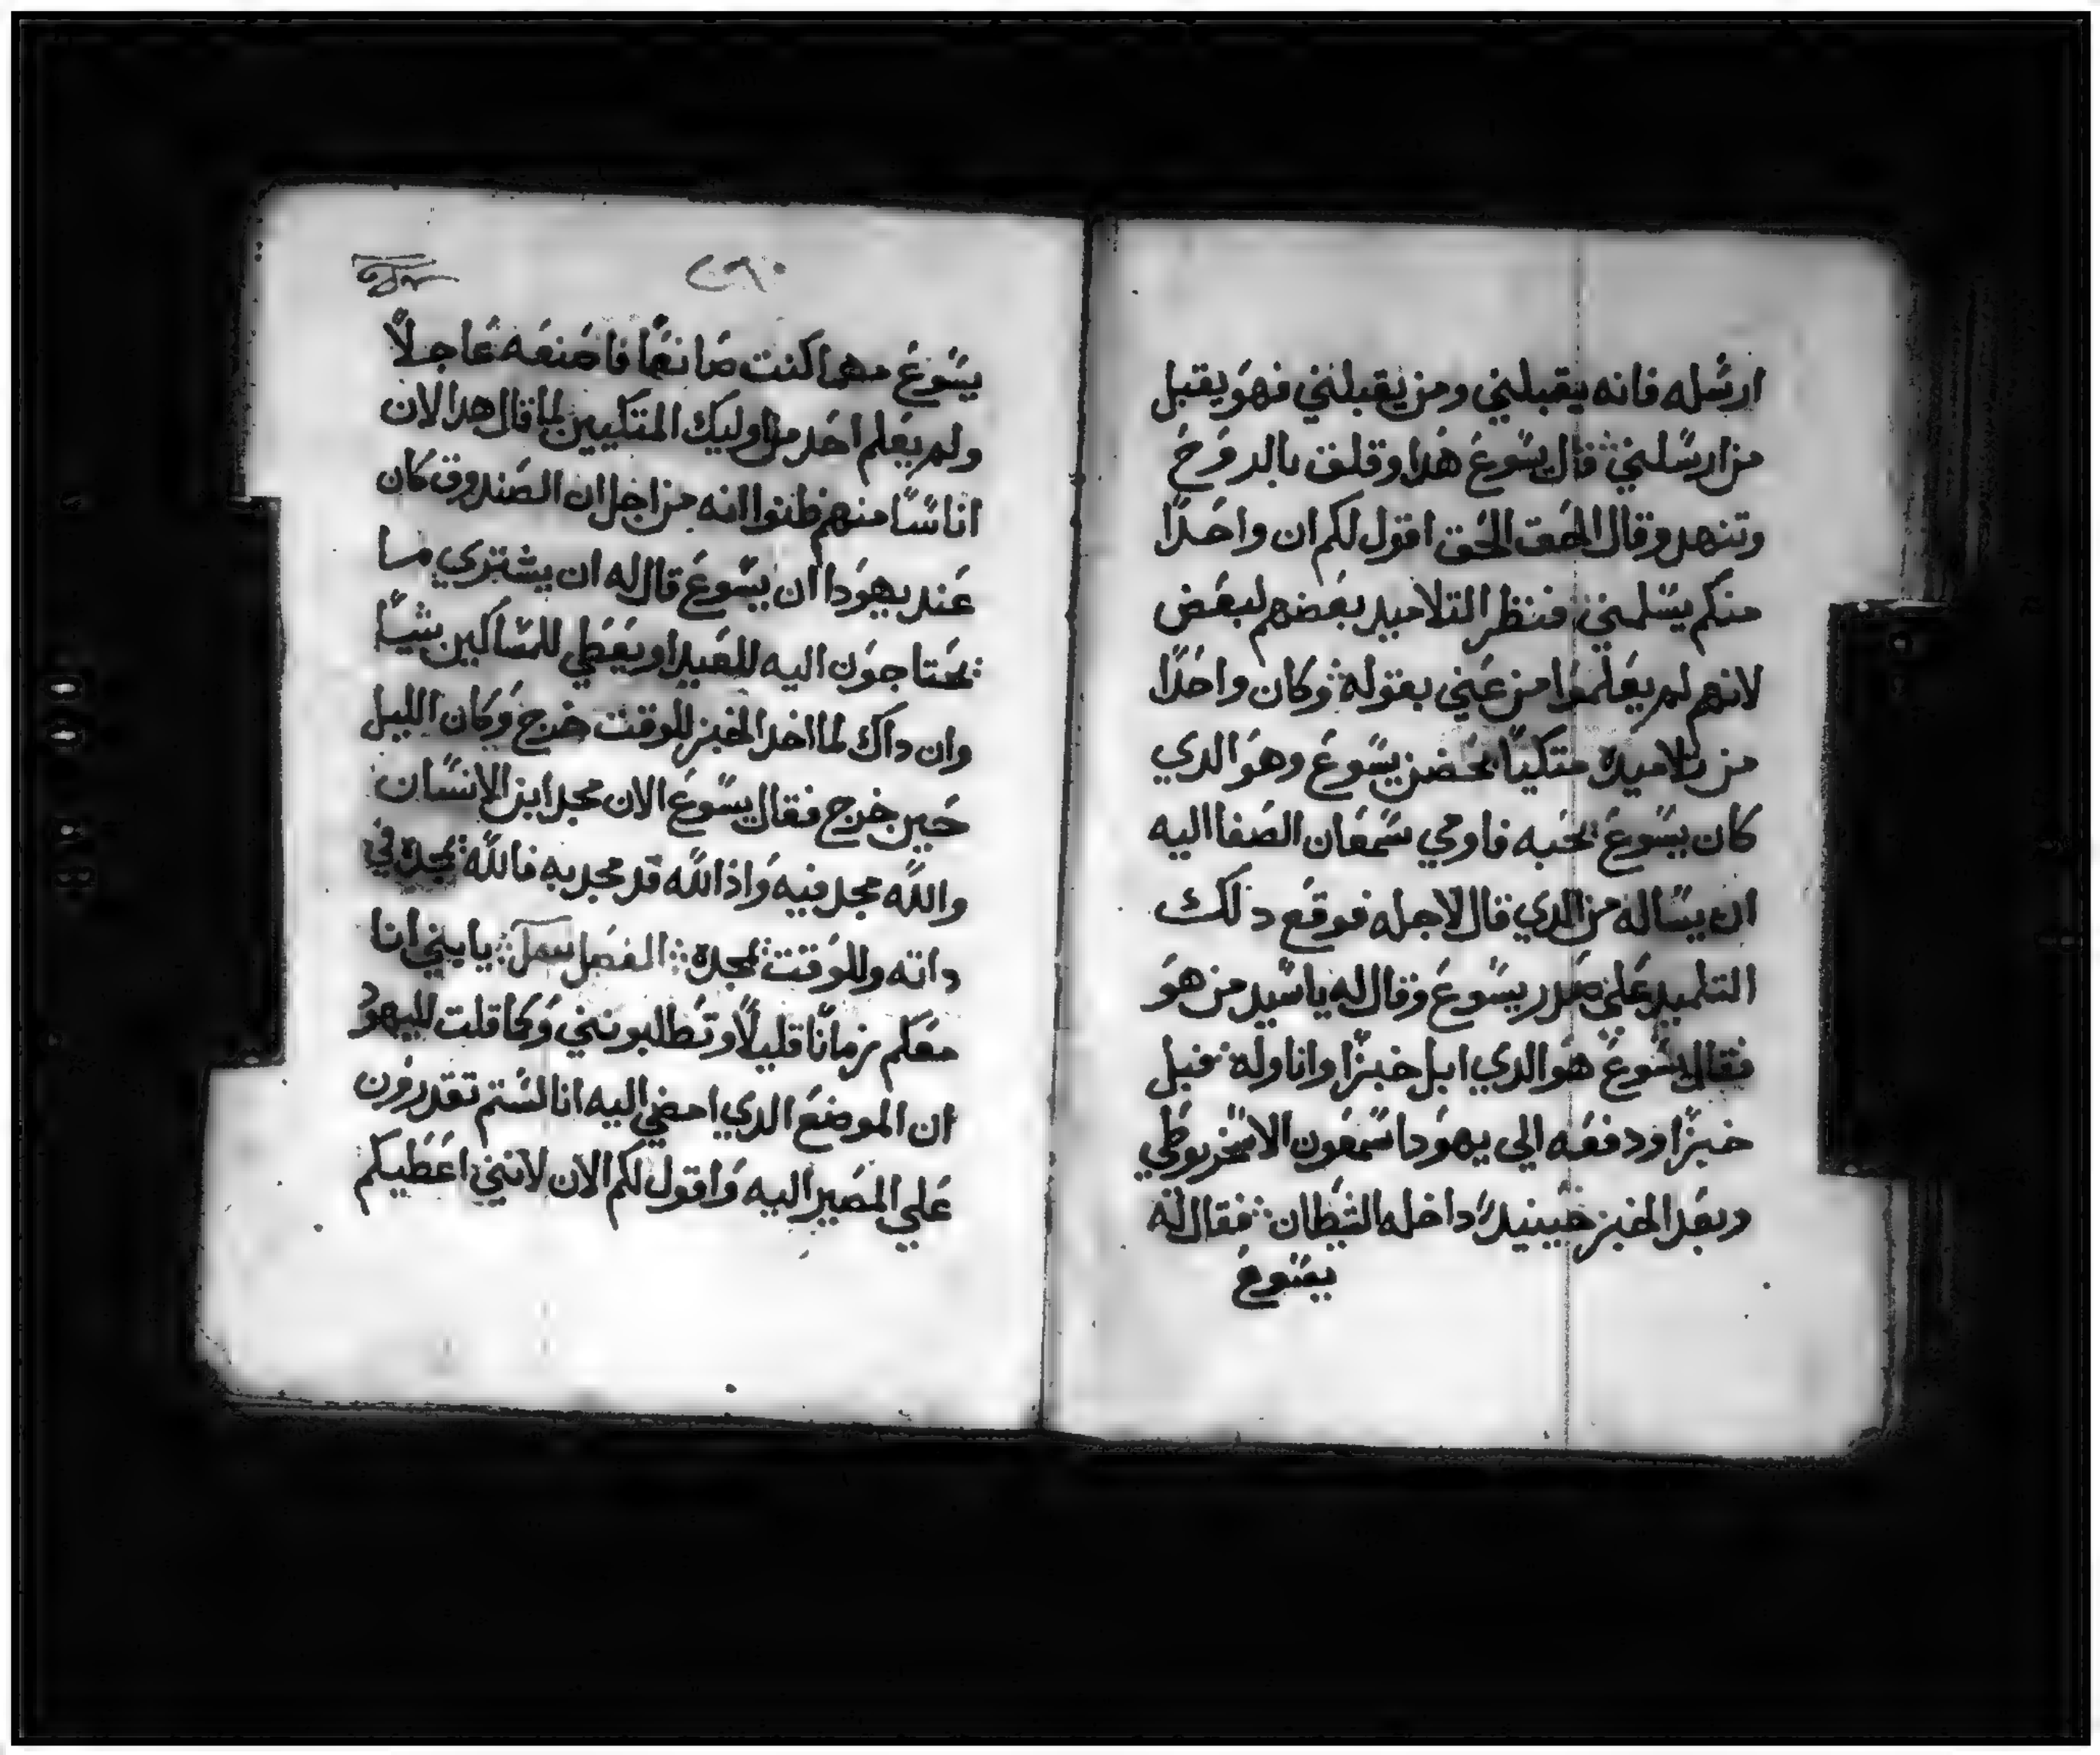 ارسله فانه يقبلني ومن يقبلني فهو يقبل
من ارسلني قال يسوع هدا وقلق بالروح
وتنهد وقال الحق الحق اقول لكم ان واحدًا
منكم يسلمني فنظر التلاميد بعضهم لبعض
لانهم لم يعلموا من عني بقوله وكان واحدًا
من تلاميده متكيًا بحضن يسوع وهو الدي
كان يسوع يحبه فاومي سمعان الصفا اليه
ان يساله من الدي قال لاجله فوقع دلك
التلميد علي صدر يسوع وقال له يا سيد من هو
فقال يسوع هو الدي ابل خبزًا واناوله فبل
خبزًا ودفعه الي يهودا سمعون الاسخريوطي
وبعد الخبز حينيد داخله الشيطان فقال له
يسوع
٢٩٠
يسوع مهما كنت صانعًا فاصنعه عاجلًا
ولم يعلم احد من اوليك المتكيين لما قال هدا لان
اناسًا منهم ظنوا انه من اجل ان الصندوق كان
عند يهودا ان يسوع قال له ان يشتري ما
يحتاجون اليه للعيد او يعطي للمساكين شيًا
وان داك لما اخد الخبز للوقت خرج وكان الليل
حين خرج فقال يسوع الان مجد ابن الانسان
والله مجد فيه واذ الله قد مجد به فالله يمجده في
داته وللوقت يمجده الفصل يا بني انا
معكم زمانًا قليلًا وتطلبونني وكما قلت لليهود
ان الموضع الدي امضي اليه انا لستم تقدرون
علي المصير اليه واقول لكم الان لانني اعطيكم